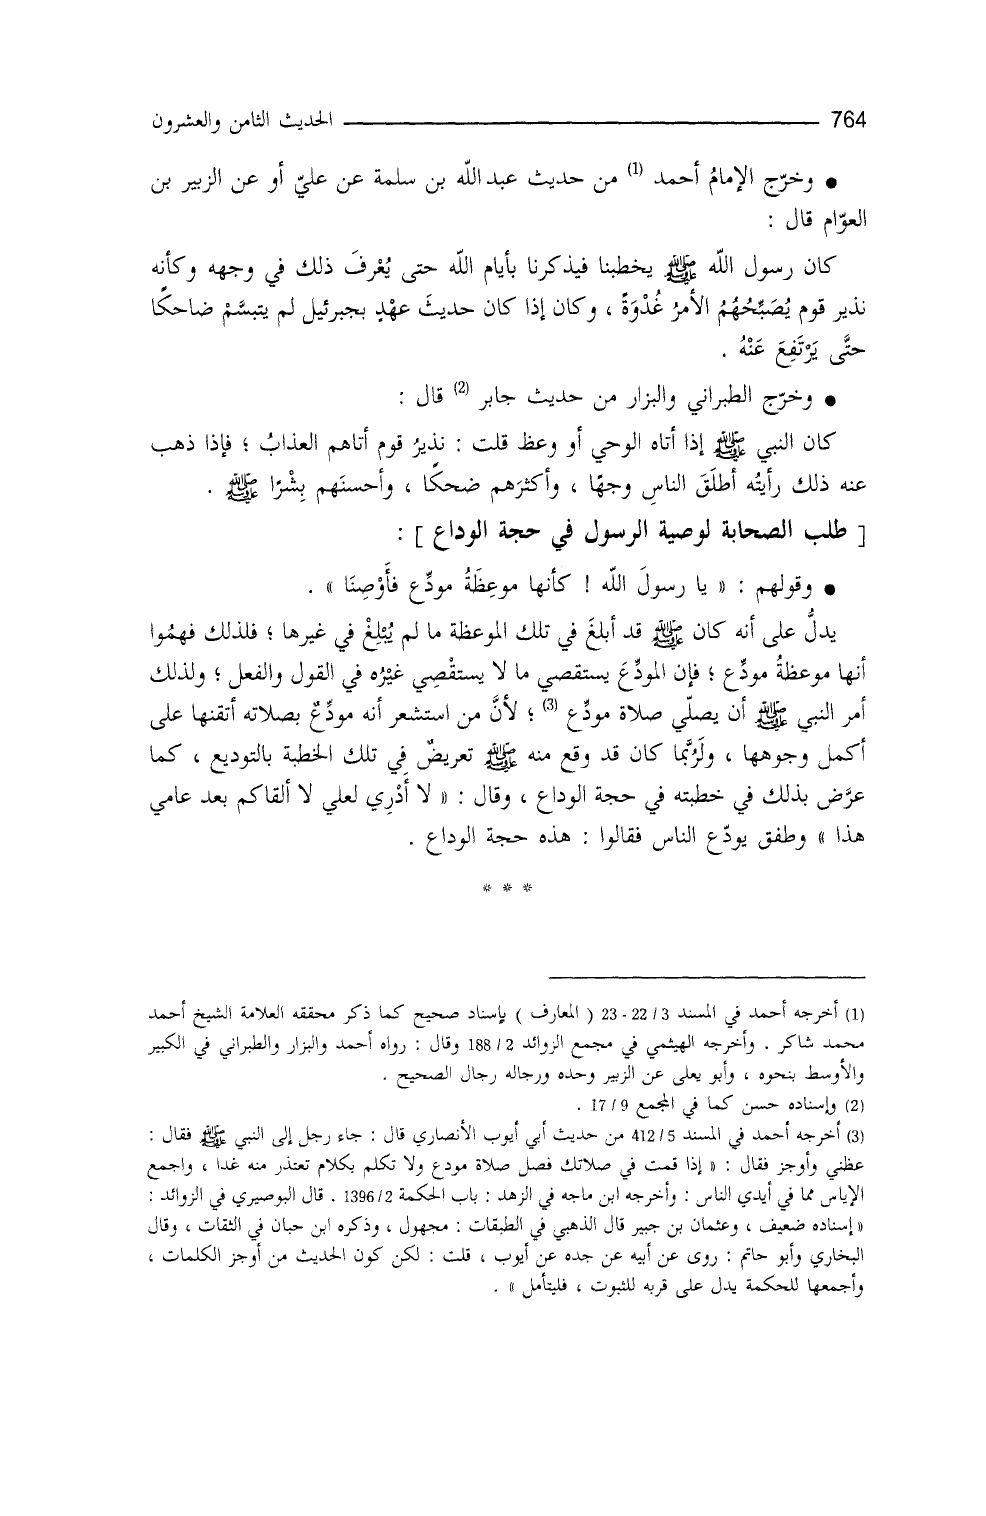 764 الحديث الثامن والعشرون
● وخرّج الإمامُ أحمد (1) من حديث عبد اللّه بن سلمة عن عليّ أو عن الزبير بن
العوّام قال :
كان رسول اللّه ﷺ يخطبنا فيذكرنا بأيام اللّه حتى يُعْرفَ ذلك في وجهه وكأنه
نذير قوم يُصَبِّحُهُمُ الأمرُ غُدْوَةً ، وكان إذا كان حديثَ عهْدٍ بجبرئيل لم يتبسَّمْ ضاحكًا
حتَّى يَرْتَفِعَ عَنْهُ .
● وخرّج الطبراني والبزار من حديث جابر (2) قال :
كان النبي ﷺ إذا أتاه الوحي أو وعظ قلت : نذيرُ قوم أتاهم العذابُ ؛ فإذا ذهب
عنه ذلك رأيتُه أطلَقَ الناسِ وجهًا ، وأكثرَهم ضحكًا ، وأحسنَهم بِشْرًا ﷺ .
[ طلب الصحابة لوصية الرسول في حجة الوداع ] :
● وقولهم : « يا رسولَ اللّه ! كأنها موعِظَةُ مودِّع فأَوْصِنَا » .
يدلُّ على أنه كان ﷺ قد أبلغَ في تلك الموعظة ما لم يُبْلِغْ في غيرها ؛ فلذلك فهمُوا
أنها موعظةُ مودِّع ؛ فإن المودِّعَ يستقصي ما لا يستقْصِي غيْرُه في القول والفعل ؛ ولذلك
أمر النبي ﷺ أن يصلّي صلاة مودِّع (3) ؛ لأنَّ من استشعر أنه مودِّعٌ بصلاته أتقنها على
أكمل وجوهها ، ولَرُبَّما كان قد وقع منه ﷺ تعريضٌ في تلك الخطبة بالتوديع ، كما
عرَّض بذلك في خطبته في حجة الوداع ، وقال : « لا أَدْرِي لعلي لا ألقاكم بعد عامي
هذا » وطفق يودّع الناس فقالوا : هذه حجة الوداع .
* * *
(1) أخرجه أحمد في المسند 3 / 22 - 23 ( المعارف ) بإسناد صحيح كما ذكر محققه العلامة الشيخ أحمد
محمد شاكر . وأخرجه الهيثمي في مجمع الزوائد 2 / 188 وقال : رواه أحمد والبزار والطبراني في الكبير
والأوسط بنحوه ، وأبو يعلى عن الزبير وحده ورجاله رجال الصحيح .
(2) وإسناده حسن كما في المجمع 9 / 17 .
(3) أخرجه أحمد في المسند 5 / 412 من حديث أبي أيوب الأنصاري قال : جاء رجل إلى النبي ﷺ فقال :
عظني وأوجز فقال : « إذا قمت في صلاتك فصل صلاة مودع ولا تكلم بكلام تعتذر منه غدا ، واجمع
الإياس مما في أيدي الناس : وأخرجه ابن ماجه في الزهد : باب الحكمة 2 / 1396 . قال البوصيري في الزوائد :
« إسناده ضعيف ، وعثمان بن جبير قال الذهبي في الطبقات : مجهول ، وذكره ابن حبان في الثقات ، وقال
البخاري وأبو حاتم : روى عن أبيه عن جده عن أيوب ، قلت : لكن كون الحديث من أوجز الكلمات ،
وأجمعها للحكمة يدل على قربه للثبوت ، فليتأمل » .